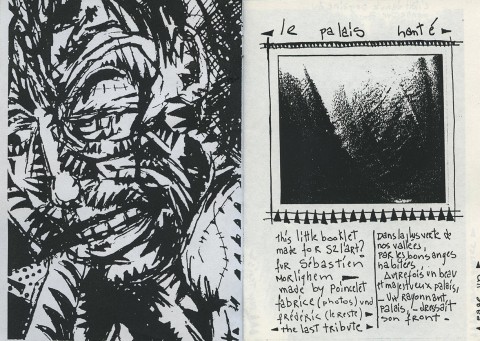 le palais hanté
this little booklet
made for S2 l'ART?
fur Sébastien
Morlighem
made by Poincelet
fabrice (photos) und
frédéric (le reste)
the last tribute
Dans la plus verte de
nos vallées,
par les bons anges
habitée,
Autrefois un beau
et majestueux palais,
Un rayonnant
palais, dressait
son front